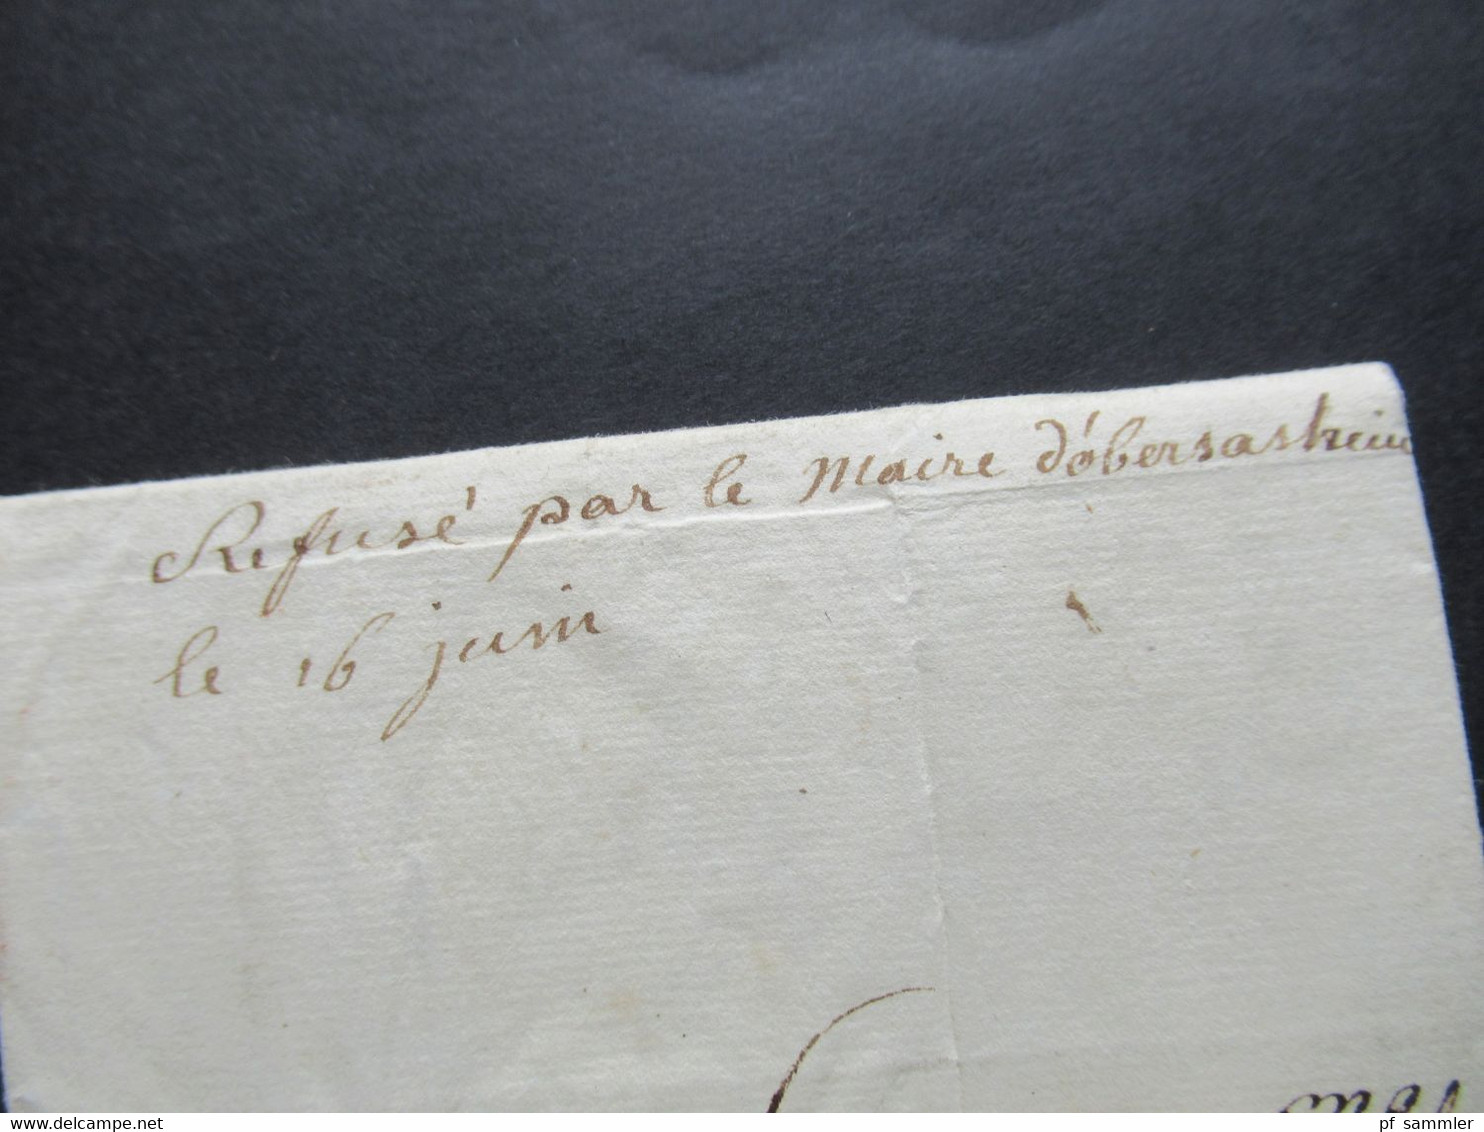 Refusé par le Maire d'obersasheim
le 16 juin
delcampe.net
pf_sammler